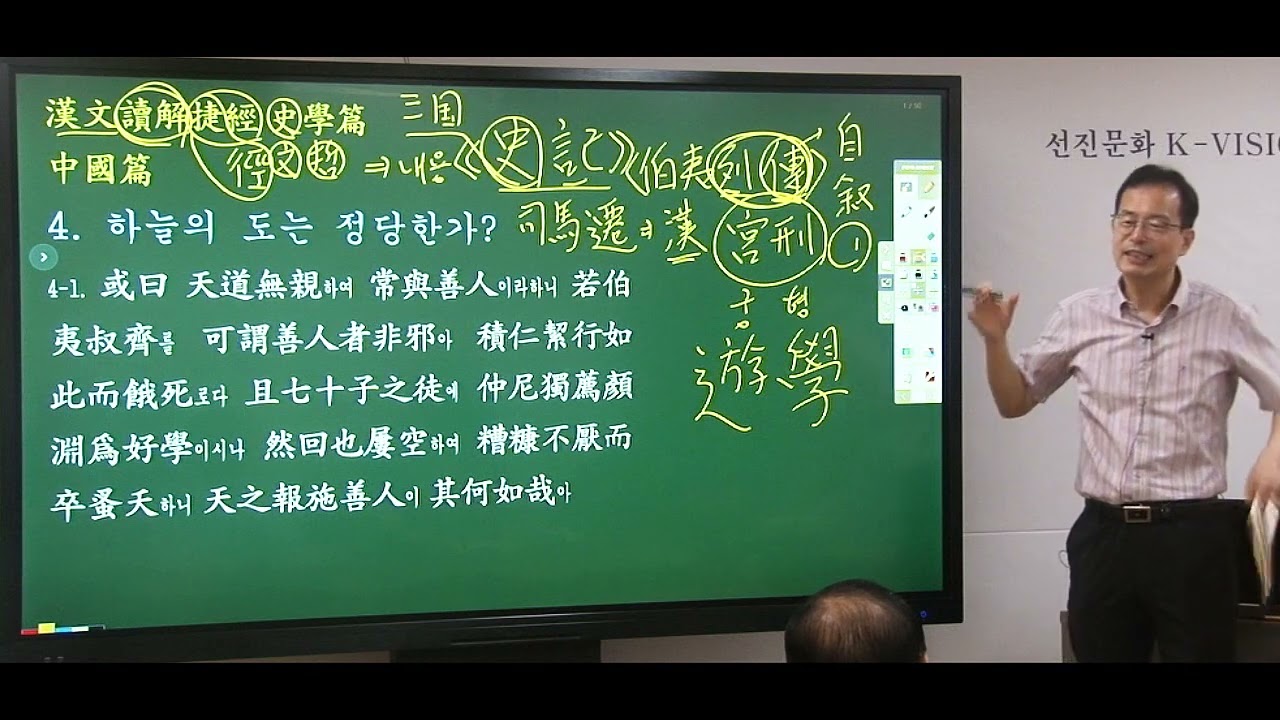 漢文讀解捷經 史學篇
三国
徑 文 哲 ⇒ 내용 《史記》〈伯夷列傳〉 自叙
中國篇
4. 하늘의 도는 정당한가?
司馬遷 漢 宮刑 ①
궁형
遊學
4-1. 或曰 天道無親하여 常與善人이라하니 若伯
夷叔齊를 可謂善人者非邪아 積仁絜行如
此而餓死로다 且七十子之徒에 仲尼獨薦顏
淵爲好學이시나 然回也屢空하여 糟糠不厭而
卒蚤夭하니 天之報施善人이 其何如哉아
선진문화 K-VISI